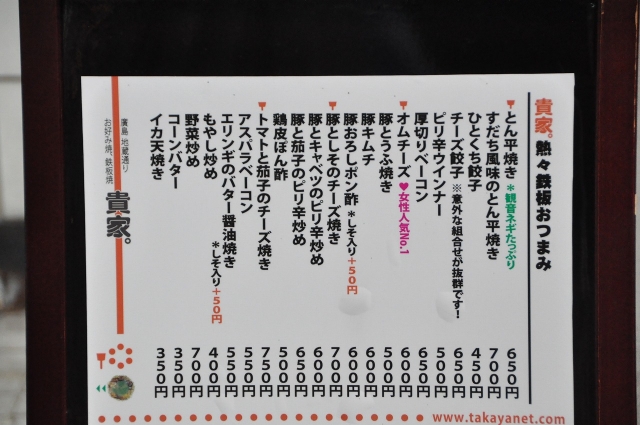 貴家。熱々鉄板おつまみ
とん平焼き ＊観音ネギたっぷり 650円
すだち風味のとん平焼き 700円
ひとくち餃子 450円
チーズ餃子 ※意外な組合せが抜群です! 650円
ピリ辛ウインナー 500円
厚切りベーコン 650円
オムチーズ ♥女性人気No.1 600円
豚とうふ焼き 500円
豚キムチ 600円
豚おろしポン酢 ＊しそ入り+50円 600円
豚としそのチーズ焼き 700円
豚とキャベツのピリ辛炒め 600円
豚と茄子のピリ辛炒め 650円
鶏皮ぽん酢 500円
トマトと茄子のチーズ焼き 750円
アスパラベーコン 550円
エリンギのバター醤油焼き 550円
もやし炒め ＊しそ入り+50円 400円
野菜炒め 700円
コーンバター 350円
イカ天焼き 350円
廣島 地蔵通り
お好み焼、鉄板焼
貴家。
www.takayanet.com